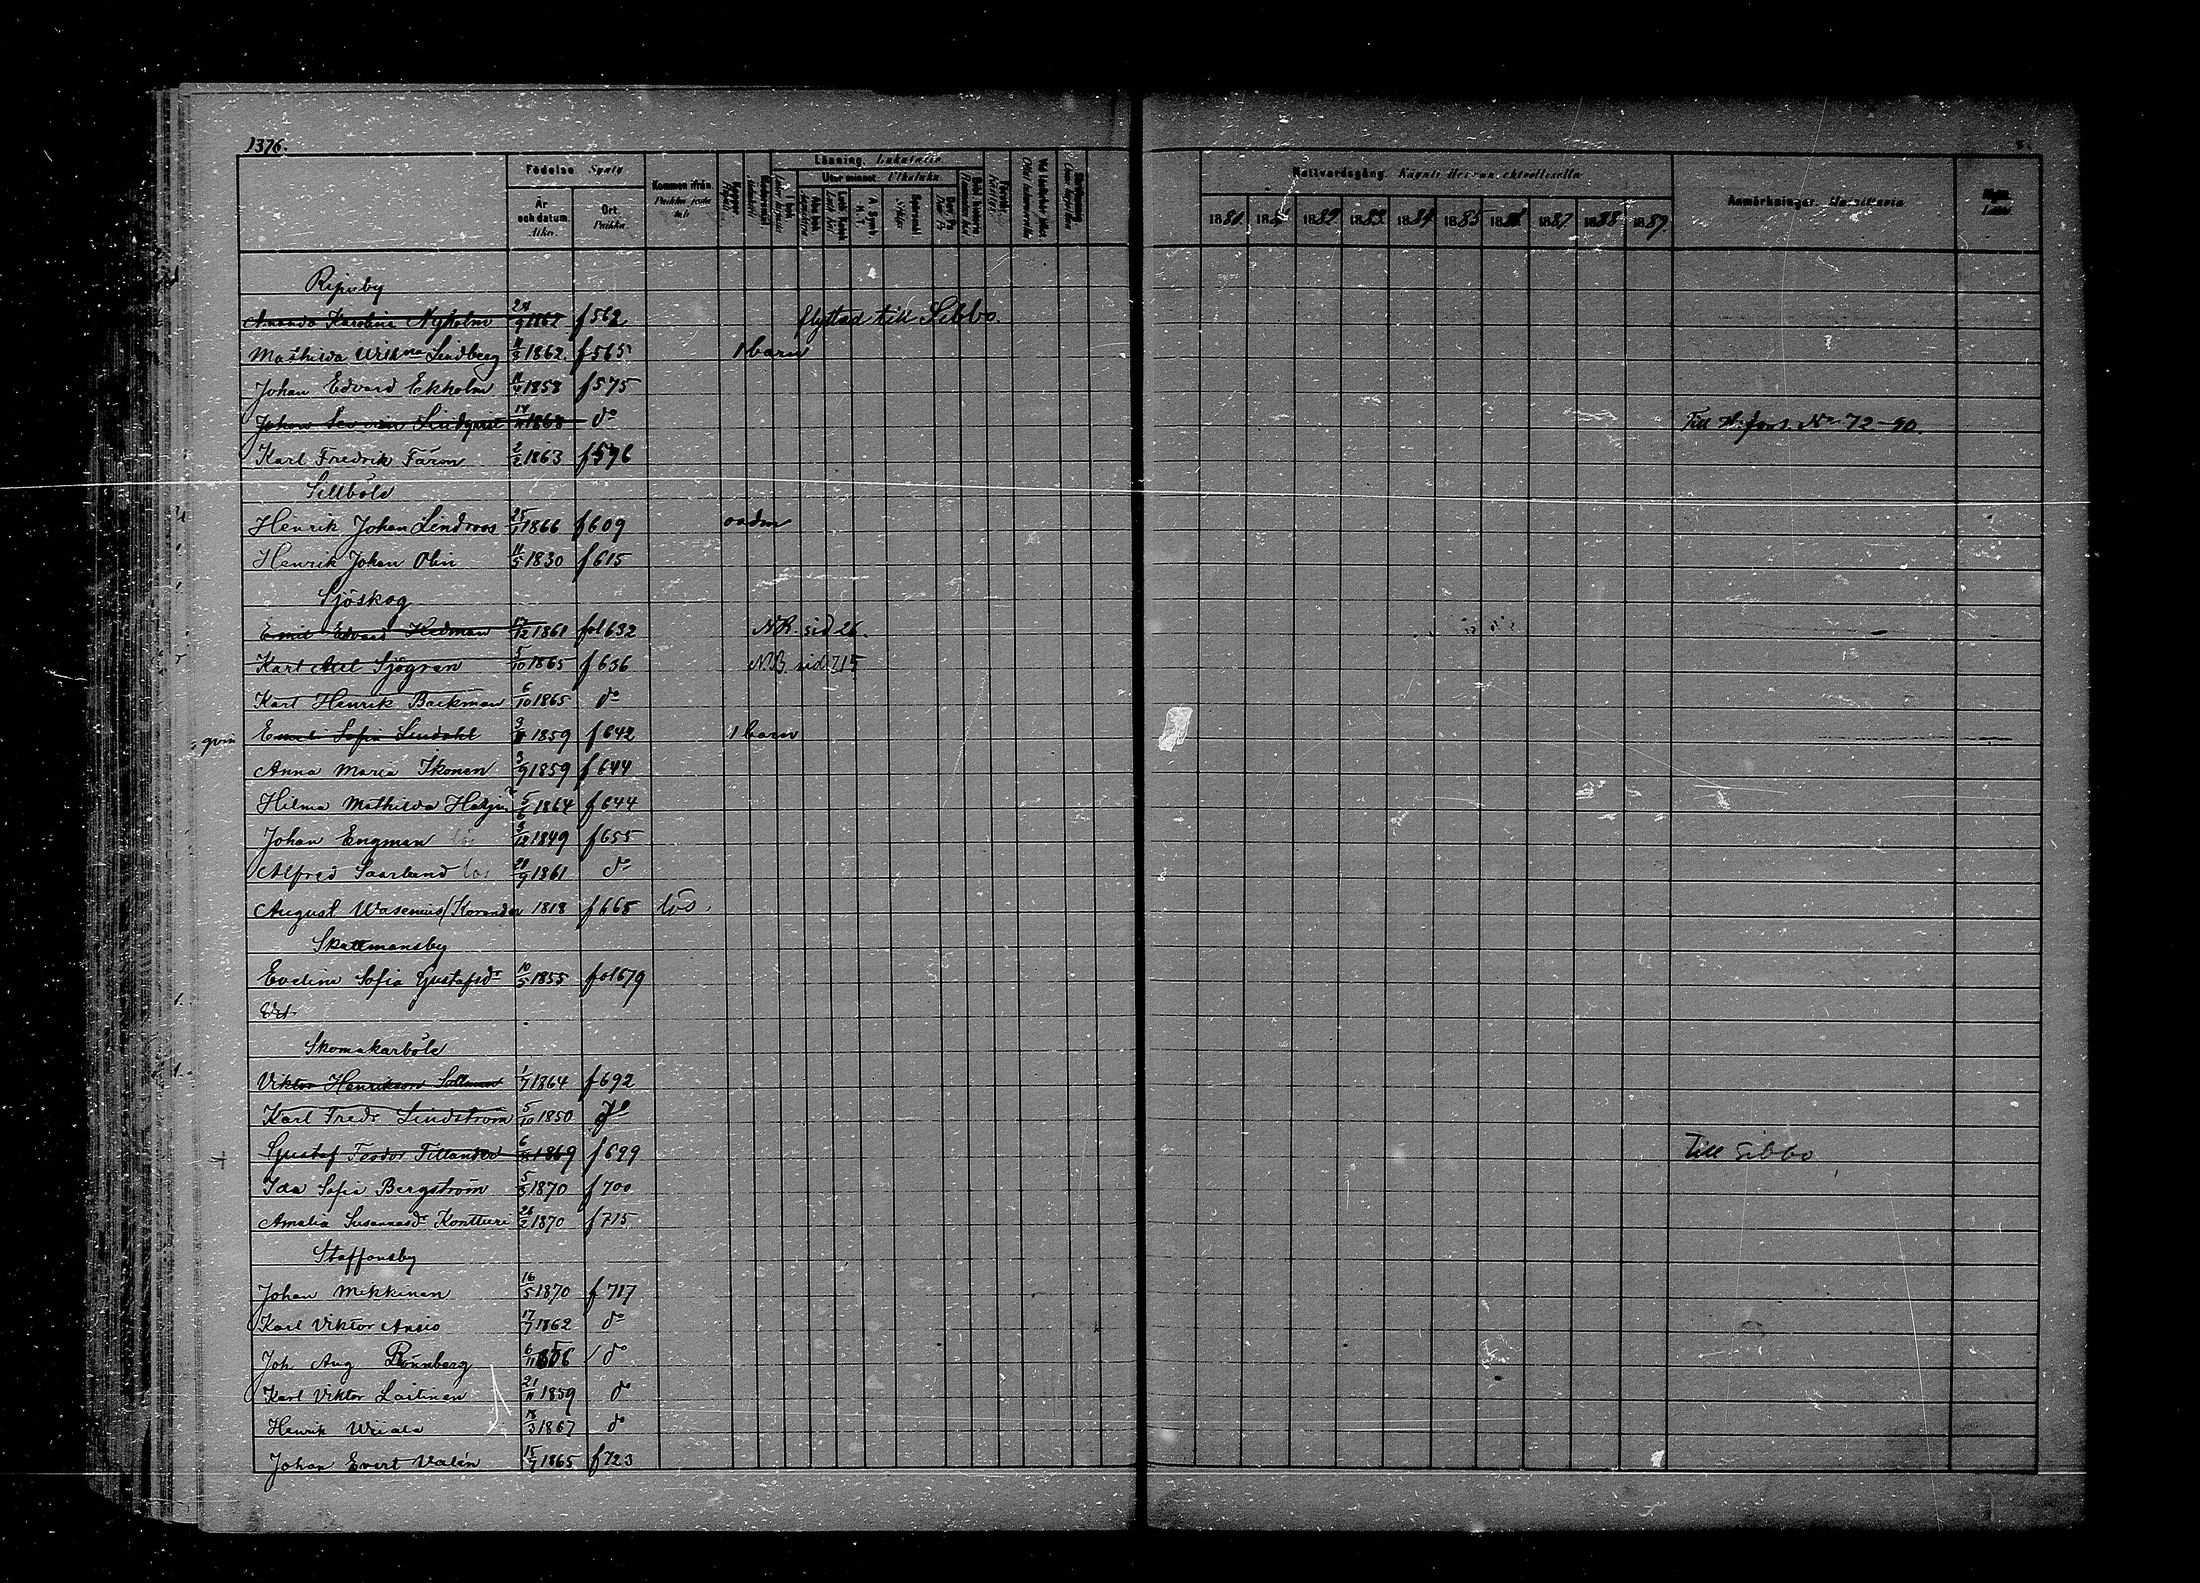 1376.
Födelse Synty
År och datum. Aika.
Ort. Paikka.
Kommen ifrån.
Läsning. Lukutaito
Utur minnet. Ulkoluku.
Nattvardsgång.
Anmärkningar.
1880. 188 1882. 1883. 1884. 1885. 188 1887. 1888. 1889.
Ripuby
Amanda Karolina Nyholm 24/9 1862 f 562 flyttad till Sibbo.
Mathilda Lindberg 1862. f 565 1 barn
Johan Edvard Ekholm 1858 f 575
Johan Severin Lindqvist 14 1868 do Till H:fors. No 72-90.
Karl Fredrik Färon 2/2 1863 f 576
Sillböle
Henrik Johan Lindroos 25 1866 f 609
Henrik Johan Olin 11/5 1830 f 615
Sjöskog
Emil Edvard Hedman 17/12 1861 fol 632 N.B. sid 26.
Karl Axel Sjögren 5/10 1865 f 636 N.B. sid 715
Karl Henrik Backman 6/10 1865 do
Emeli Sofia Lindahl 1859 f 642 1 barn
Anna Maria Ikonen 3/9 1859 f 644
Hilma Mathilda 5/6 1864 f 644
Johan Engman 3/12 1849 f 655
Alfred Saarlund lös 21/9 1861 do
August Wasenius/Korander 1818 f 665 lös.
Skattmansby
Evelina Sofia Gustafsdr 10/5 1855 fol 679
Skomakarböle
Viktor Henrikson Sallman 1/7 1864 f 692
Karl Fredr Lindström 5/10 1850 do
Gustaf Teodor Tillander 6 1869 f 699 Till Sibbo
Ida Sofia Bergström 5/5 1870 f 700
Amalia Susannasdr Kontturi 26/2 1870 f 715
Staffansby
Johan Mikkinen 16/5 1870 f 717
Karl Viktor Ansio 17/7 1862 do
Joh Aug Rönnberg 6/11 1856 do
Karl Viktor Laitinen 21/11 1859 do
Henrik Wriala 18/3 1867 do
Johan Evert Valén 15/7 1865 f 723